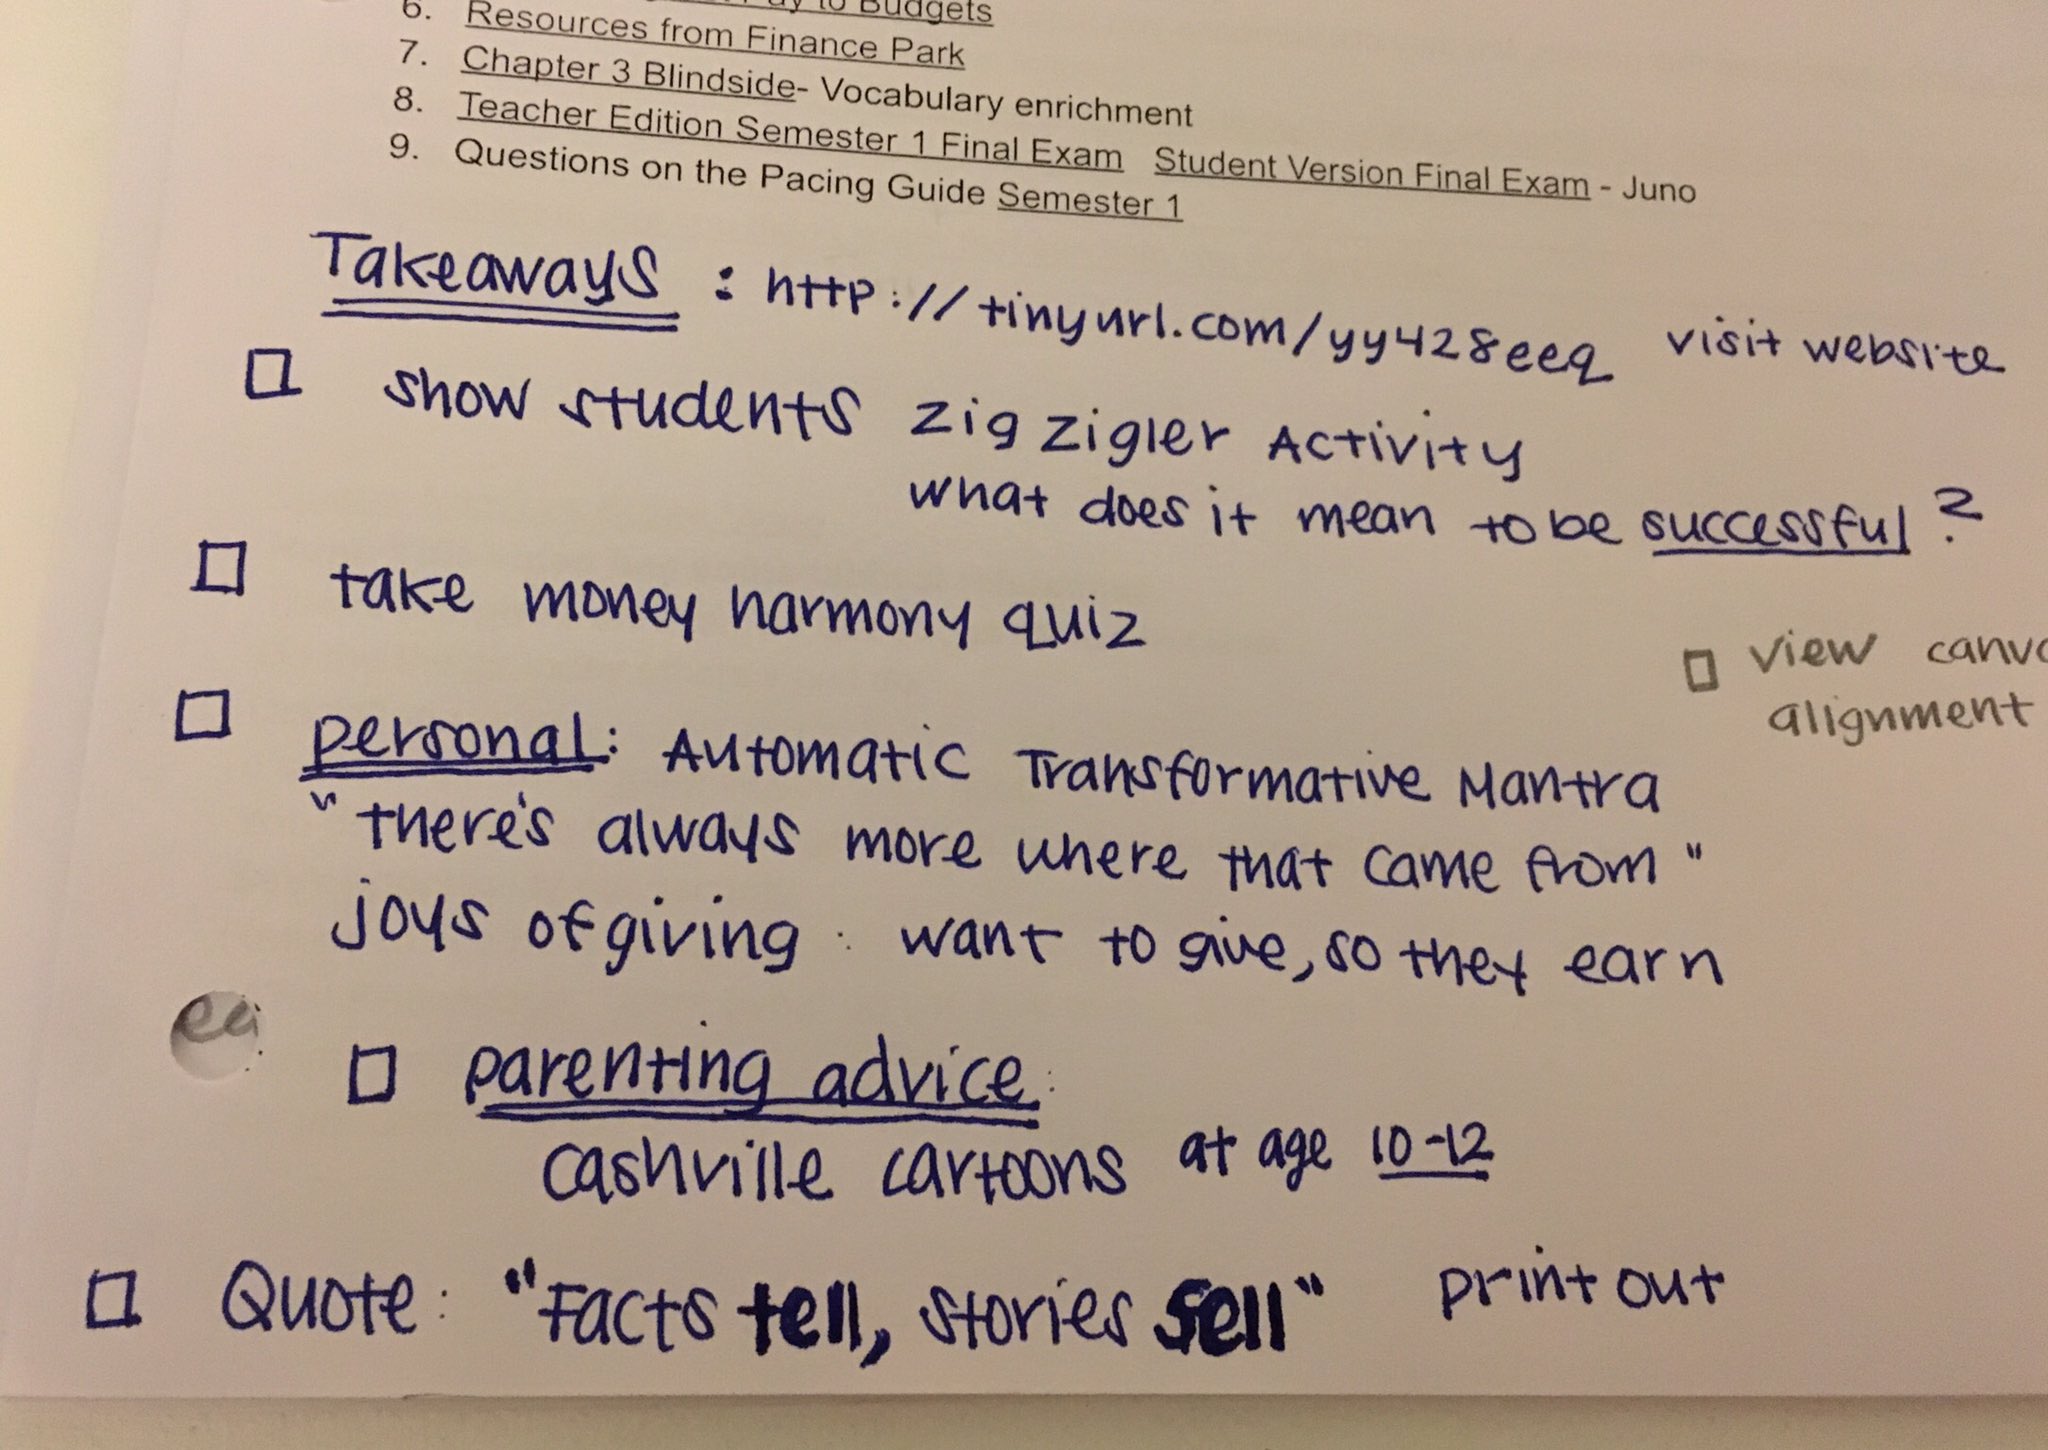 to Budgets
6. Resources from Finance Park
7. Chapter 3 Blindside- Vocabulary enrichment
8. Teacher Edition Semester 1 Final Exam Student Version Final Exam - Juno
9. Questions on the Pacing Guide Semester 1
Takeaways : http://tinyurl.com/yy428eeq visit website
show students zig zigler Activity
what does it mean to be successful?
take money harmony quiz
view
alignment
personal: Automatic Transformative Mantra
"there's always more where that came from"
joys of giving: want to give, so they earn
parenting advice:
cashville cartoons at age 10-12
Quote: "Facts tell, stories sell" print out